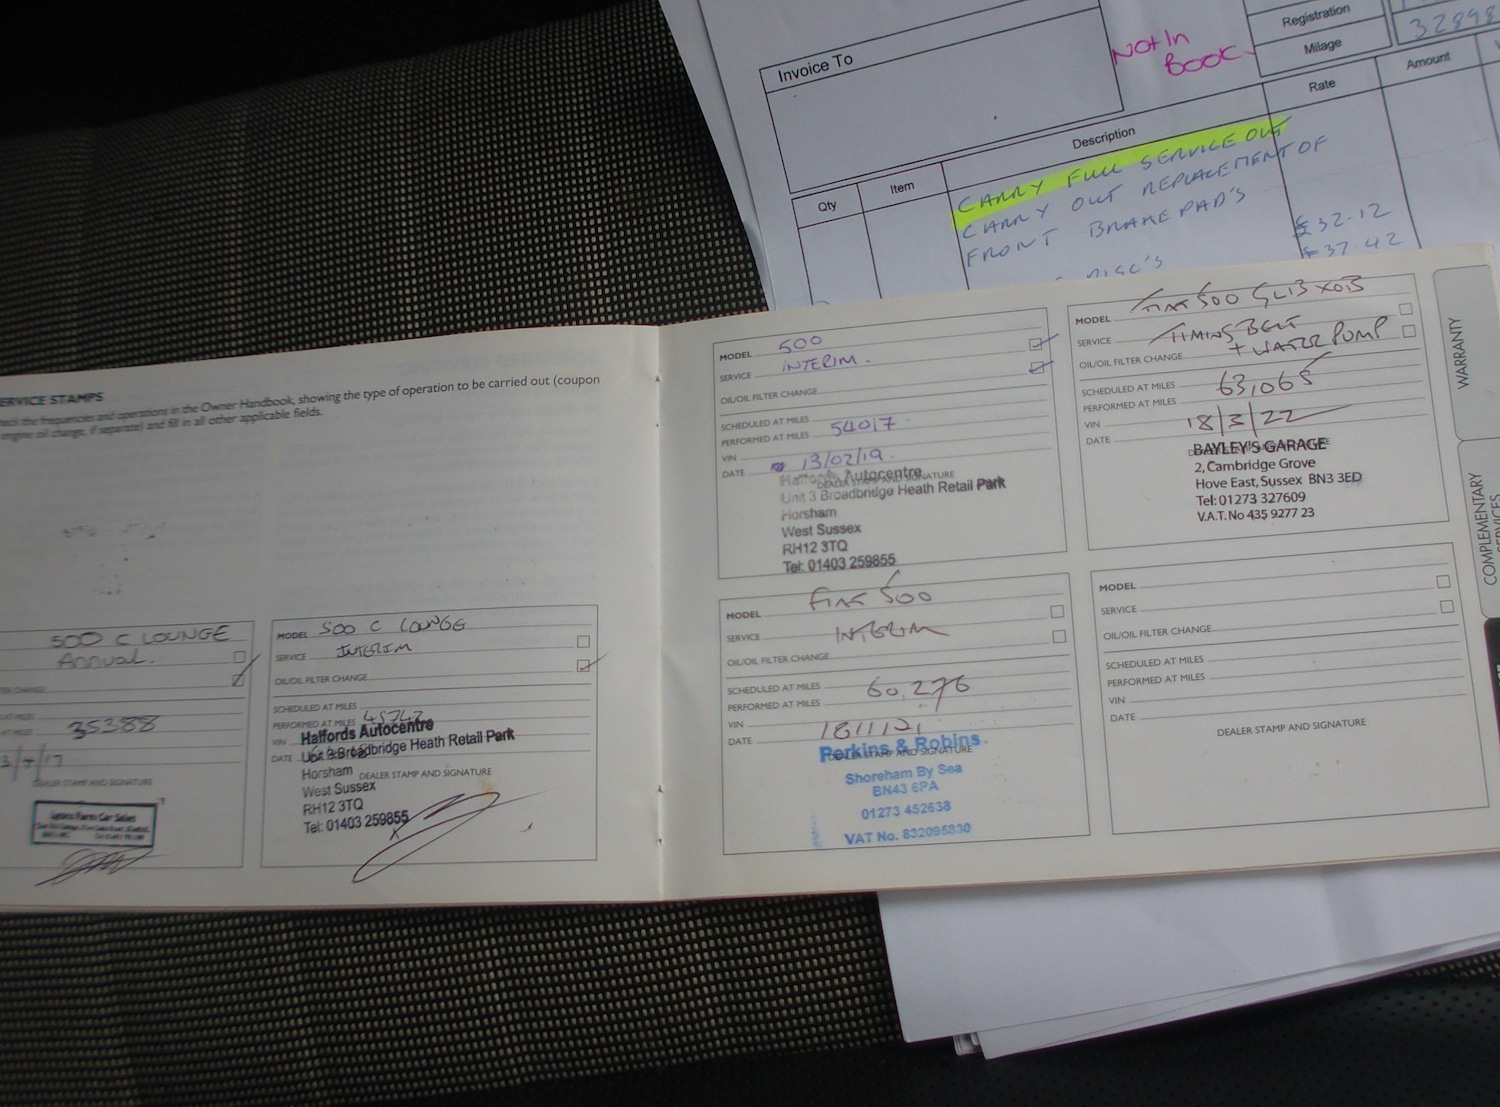 Invoice To
Not In
Book
Registration
Milage
32898
Qty
Item
Description
Rate
Amount
CARRY FULL SERVICE OUT
CARRY OUT REPLACEMENT OF
FRONT BRAKE PAD'S
£32.12
DISC'S
£37.42
SERVICE STAMPS
showing the type of operation to be carried out (coupon
engine oil change, if separate) and fill in all other applicable fields.
500 C LOUNGE
Annual.
35388
DEALER STAMP AND SIGNATURE
MODEL 500 C LOUNGE
SERVICE INTERIM
OIL/OIL FILTER CHANGE
SCHEDULED AT MILES
PERFORMED AT MILES
VIN
DATE
Halfords Autocentre
Unit 3 Broadbridge Heath Retail Park
Horsham
DEALER STAMP AND SIGNATURE
West Sussex
RH12 3TQ
Tel: 01403 259855
MODEL 500
SERVICE INTERIM.
OIL/OIL FILTER CHANGE
SCHEDULED AT MILES
PERFORMED AT MILES 54017
VIN
DATE 13/02/19.
Halfords Autocentre
DEALER STAMP AND SIGNATURE
Unit 3 Broadbridge Heath Retail Park
Horsham
West Sussex
RH12 3TQ
Tel: 01403 259855
MODEL FIAT 500 GL13 XOB
SERVICE TIMING BELT
OIL/OIL FILTER CHANGE + WATER PUMP
SCHEDULED AT MILES
PERFORMED AT MILES 63,065
VIN
DATE 18/3/22
BAYLEY'S GARAGE
2, Cambridge Grove
Hove East, Sussex BN3 3ED
Tel: 01273 327609
V.A.T. No 435 9277 23
MODEL FIAT 500
SERVICE INTERIM
OIL/OIL FILTER CHANGE
SCHEDULED AT MILES
PERFORMED AT MILES 60,276
VIN
DATE 18/1/21
Perkins & Robins
DEALER STAMP AND SIGNATURE
Shoreham By Sea
BN43 6PA
01273 452638
VAT No. 832095830
MODEL
SERVICE
OIL/OIL FILTER CHANGE
SCHEDULED AT MILES
PERFORMED AT MILES
VIN
DATE
DEALER STAMP AND SIGNATURE
WARRANTY
COMPLEMENTARY
SERVICES